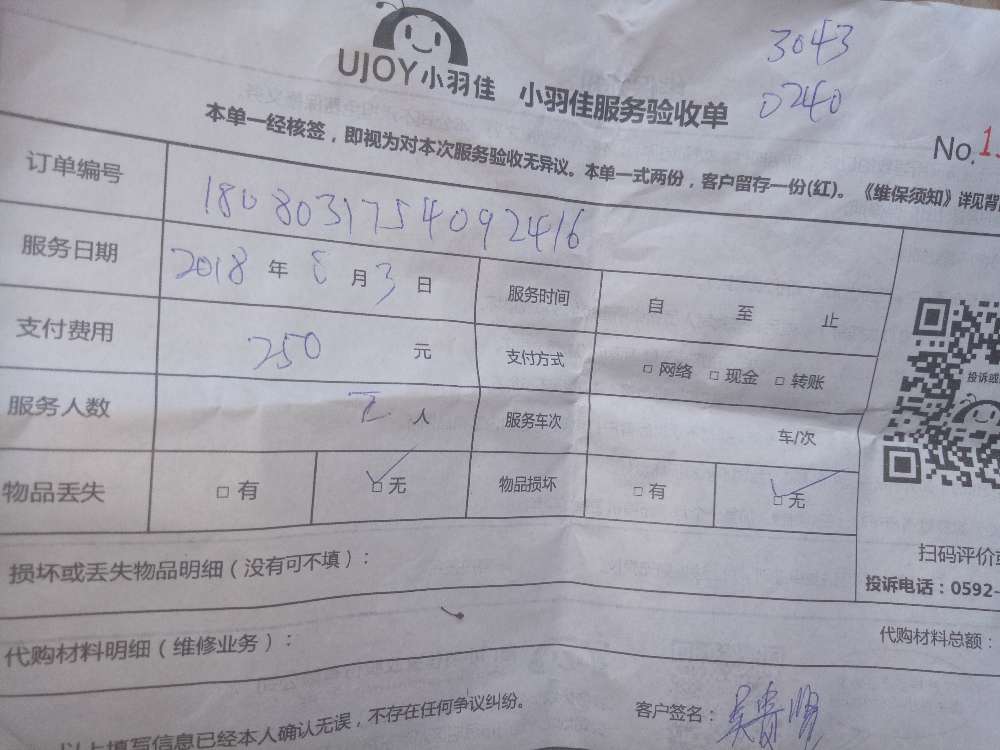 3043
0240
UJOY小羽佳 小羽佳服务验收单
No.1
本单一经核签，即视为对本次服务验收无异议。本单一式两份，客户留存一份(红)。《维保须知》详见背
订单编号 1808031754092416
服务日期 2018 年 8 月 3 日 服务时间 自 至 止
支付费用 250 元 支付方式 □ 网络 □ 现金 □ 转账
投诉或
服务人数 人 服务车次 车/次
物品丢失 □ 有 □ 无 物品损坏 □ 有 □ 无
扫码评价或
损坏或丢失物品明细（没有可不填）：
投诉电话：0592-
代购材料明细（维修业务）：
代购材料总额：
以上填写信息已经本人确认无误，不存在任何争议纠纷。
客户签名：吴贵明